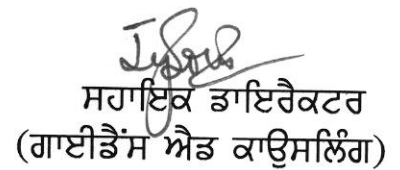 ਸਹਾਇਕ ਡਾਇਰੈਕਟਰ
(ਗਾਈਡੈਂਸ ਐਡ ਕਾਉਸਲਿੰਗ)